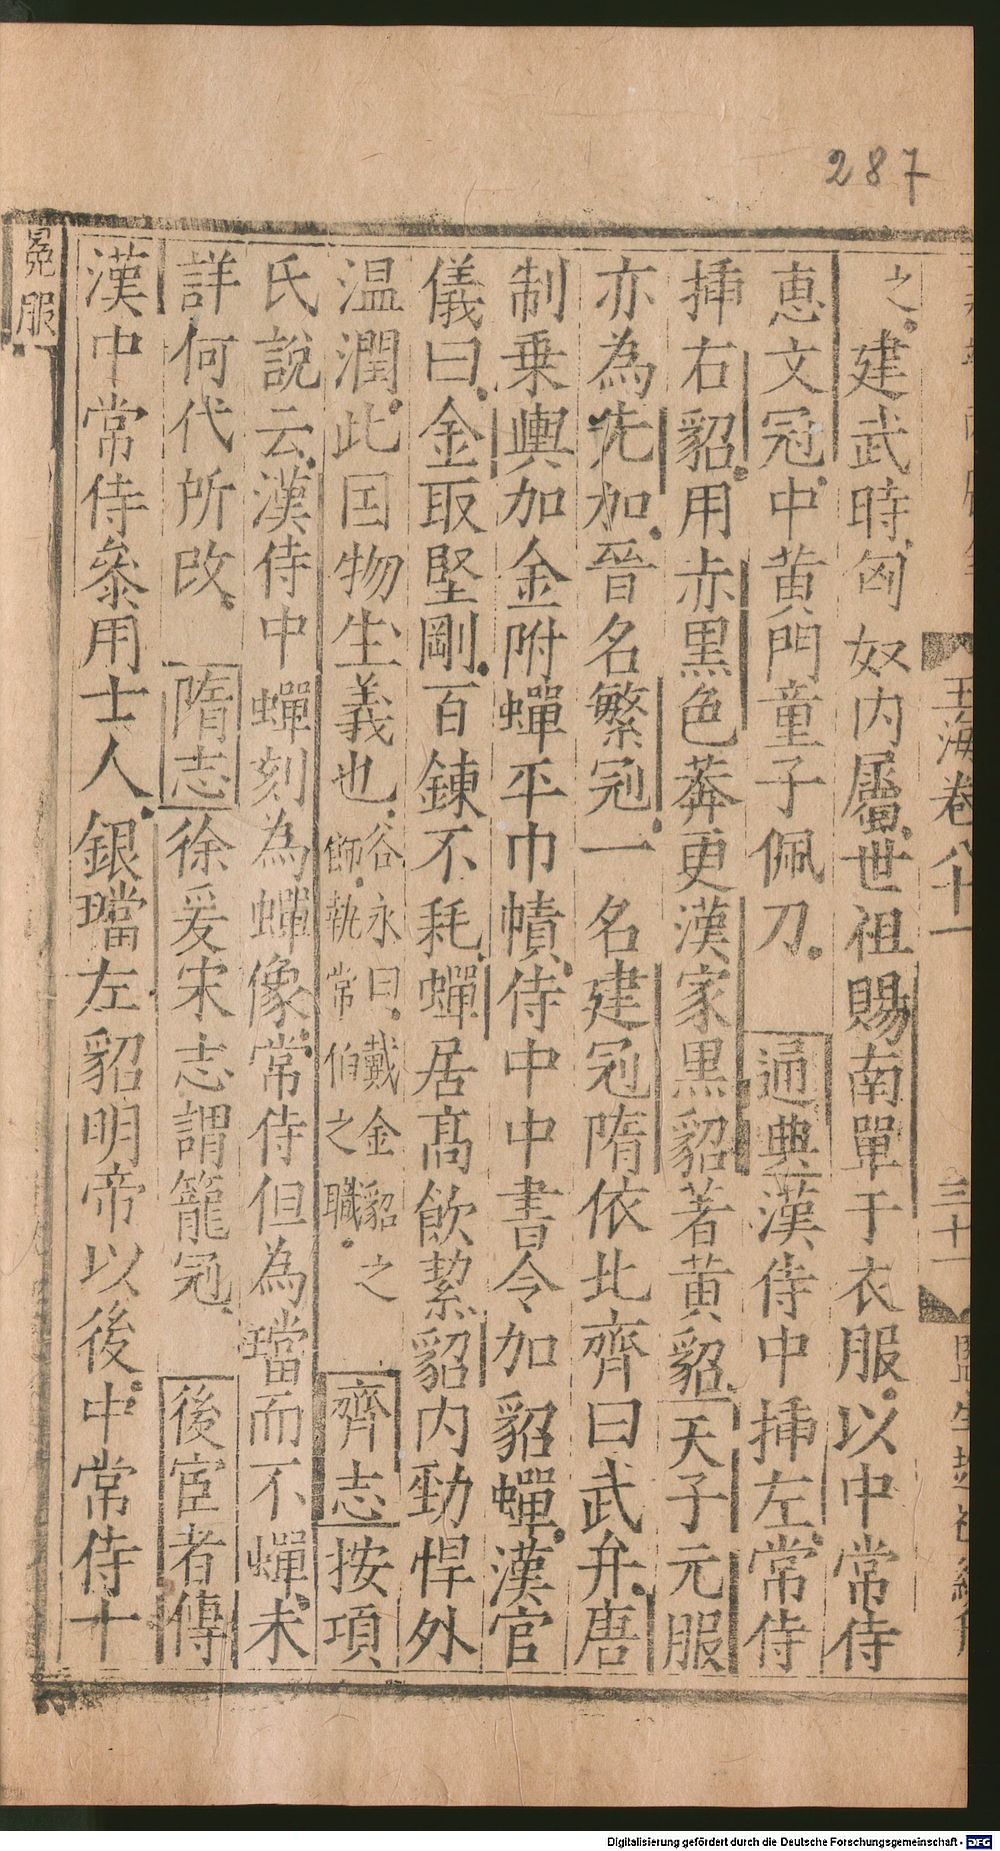 287
玉海卷八十一
三十一
之建武時匈奴内屬世祖賜南單于衣服以中常侍
恵文冠中黄門童子佩刀通典漢侍中挿左常侍
挿右貂用赤黒色莽更漢家黒貂著黄貂天子元服
亦為先加晉名繁冠一名建冠隋依北齊曰武弁唐
制乗輿加金附蟬平巾幘侍中中書令加貂蟬漢官
儀曰金取堅剛百錬不耗蟬居髙飲絜貂内勁悍外
温潤此因物生義也谷永曰戴金貂之飾執常伯之職齊志按項
氏說云漢侍中蟬刻為蟬像常侍但為璫而不蟬未
詳何代所改隋志徐爰宋志謂籠冠後宦者傳
漢中常侍叅用士人銀璫左貂明帝以後中常侍十
冕服
Digitalisierung gefördert durch die Deutsche Forschungsgemeinschaft - DFG